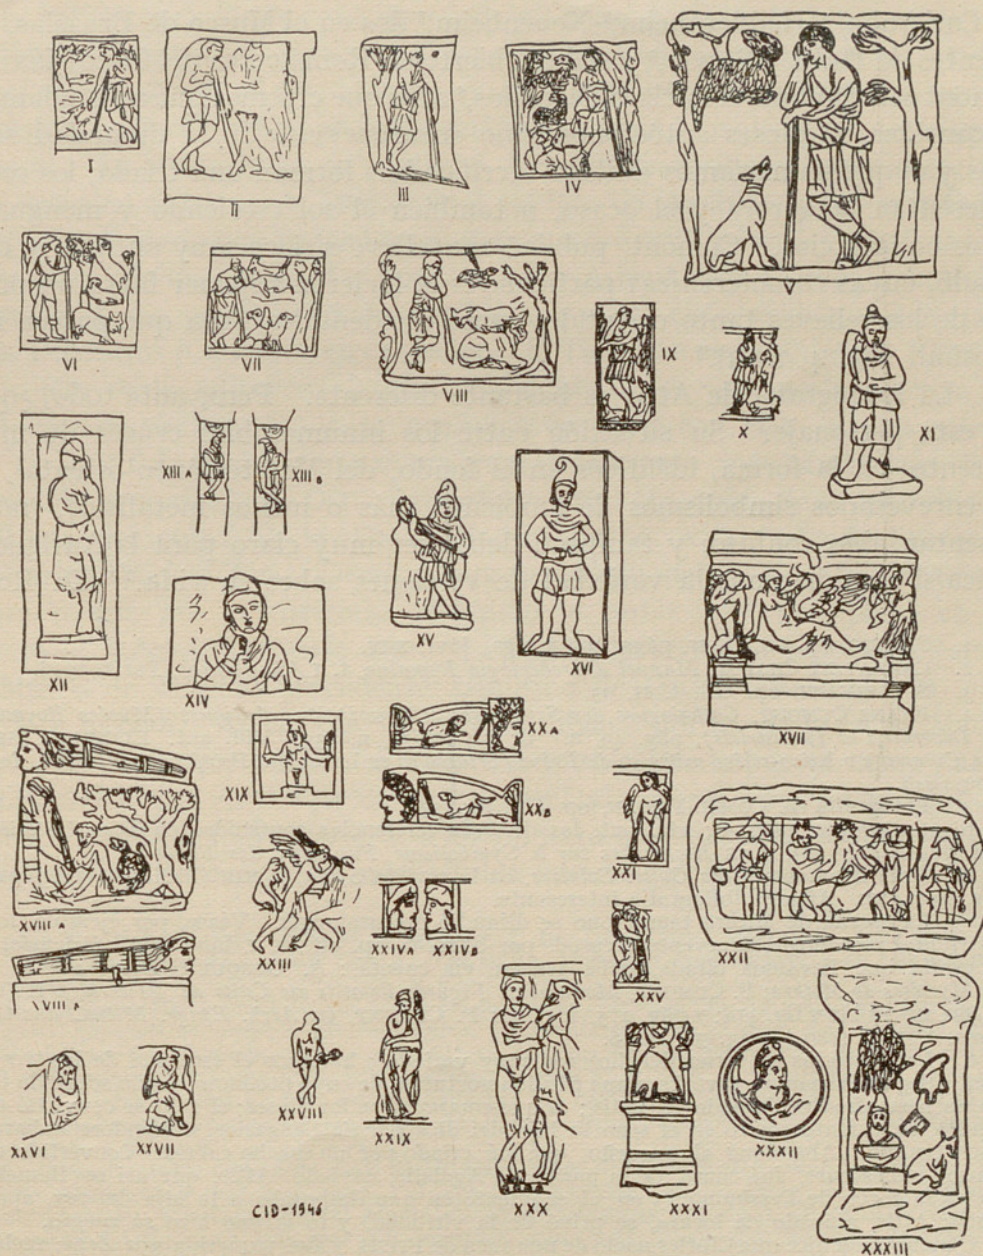 I
II
III
IV
V
VI
VII
VIII
IX
X
XI
XII
XIII A
XIII B
XIV
XV
XVI
XVII
XVIII A
XIX
XX A
XX B
XXI
XXII
XXIII
XXIV A
XXIV B
XXV
XXVI
XXVII
XXVIII
XXIX
XXX
XXXI
XXXII
XXXIII
CID-1946